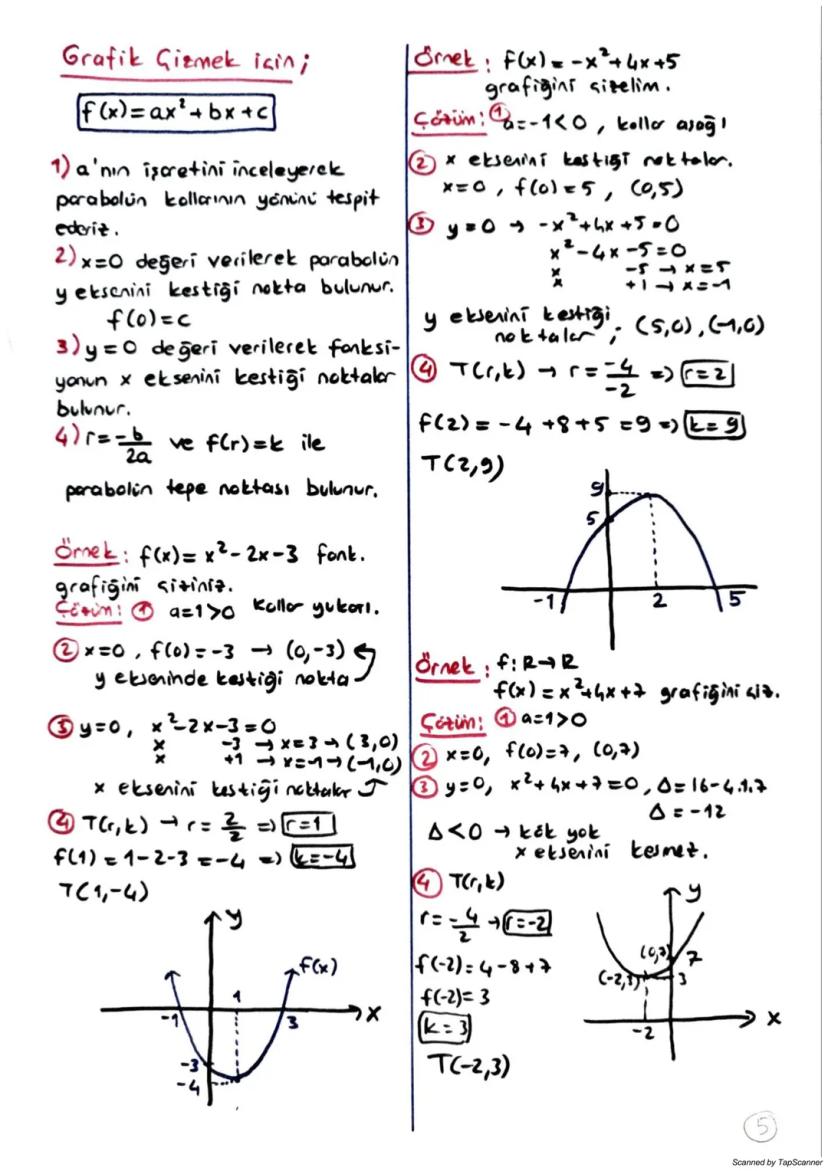 Grafik Çizmek için;
f(x)=ax²+bx+c
1) a'nın işaretini inceleyerek
parabolün kollarının yönünü tespit
ederiz.
2) x=0 değeri verilerek parabolün
y eksenini kestiği nokta bulunur.
f(0)=c
3) y=0 değeri verilerek fonksi-
yonun x eksenini kestiği noktalar
bulunur.
4) r=-b/2a ve f(r)=k ile
parabolün tepe noktası bulunur.
Örnek: f(x)=x²-2x-3 fonk.
grafiğini çiziniz.
Çözüm: ① a=1>0 Kollar yukarı.
② x=0, f(0)=-3 → (0,-3)
y ekseninde kestiği nokta
③ y=0, x²-2x-3=0
x -3 → x=3 → (3,0)
x +1 → x=-1 → (-1,0)
x eksenini kestiği noktalar
④ T(r,k) → r=2/2 => r=1
f(1)=1-2-3=-4 => k=-4
T(1,-4)
y
f(x)
1
-1 3 x
-3
-4
Örnek: f(x)=-x²+4x+5
grafiğini çizelim.
Çözüm: ① a=-1<0, kollar aşağı
② x eksenini kestiği noktalar.
x=0, f(0)=5, (0,5)
③ y=0 → -x²+4x+5=0
x²-4x-5=0
x -5 → x=5
x +1 → x=-1
y eksenini kestiği
noktalar; (5,0),(-1,0)
④ T(r,k) → r=-4/-2 => r=2
f(2)=-4+8+5=9 => k=9
T(2,9)
9
5
-1 2 5
Örnek: f:R→R
f(x)=x²+4x+7 grafiğini çiz.
Çözüm: ① a=1>0
② x=0, f(0)=7, (0,7)
③ y=0, x²+4x+7=0, Δ=16-4.1.7
Δ=-12
Δ<0 → kök yok
x eksenini kesmez.
④ T(r,k)
r=-4/2 → r=-2
f(-2)=4-8+7
f(-2)=3
k=3
T(-2,3)
y
(0,7) 7
(-2,3) 3
-2 x
5
Scanned by TapScanner